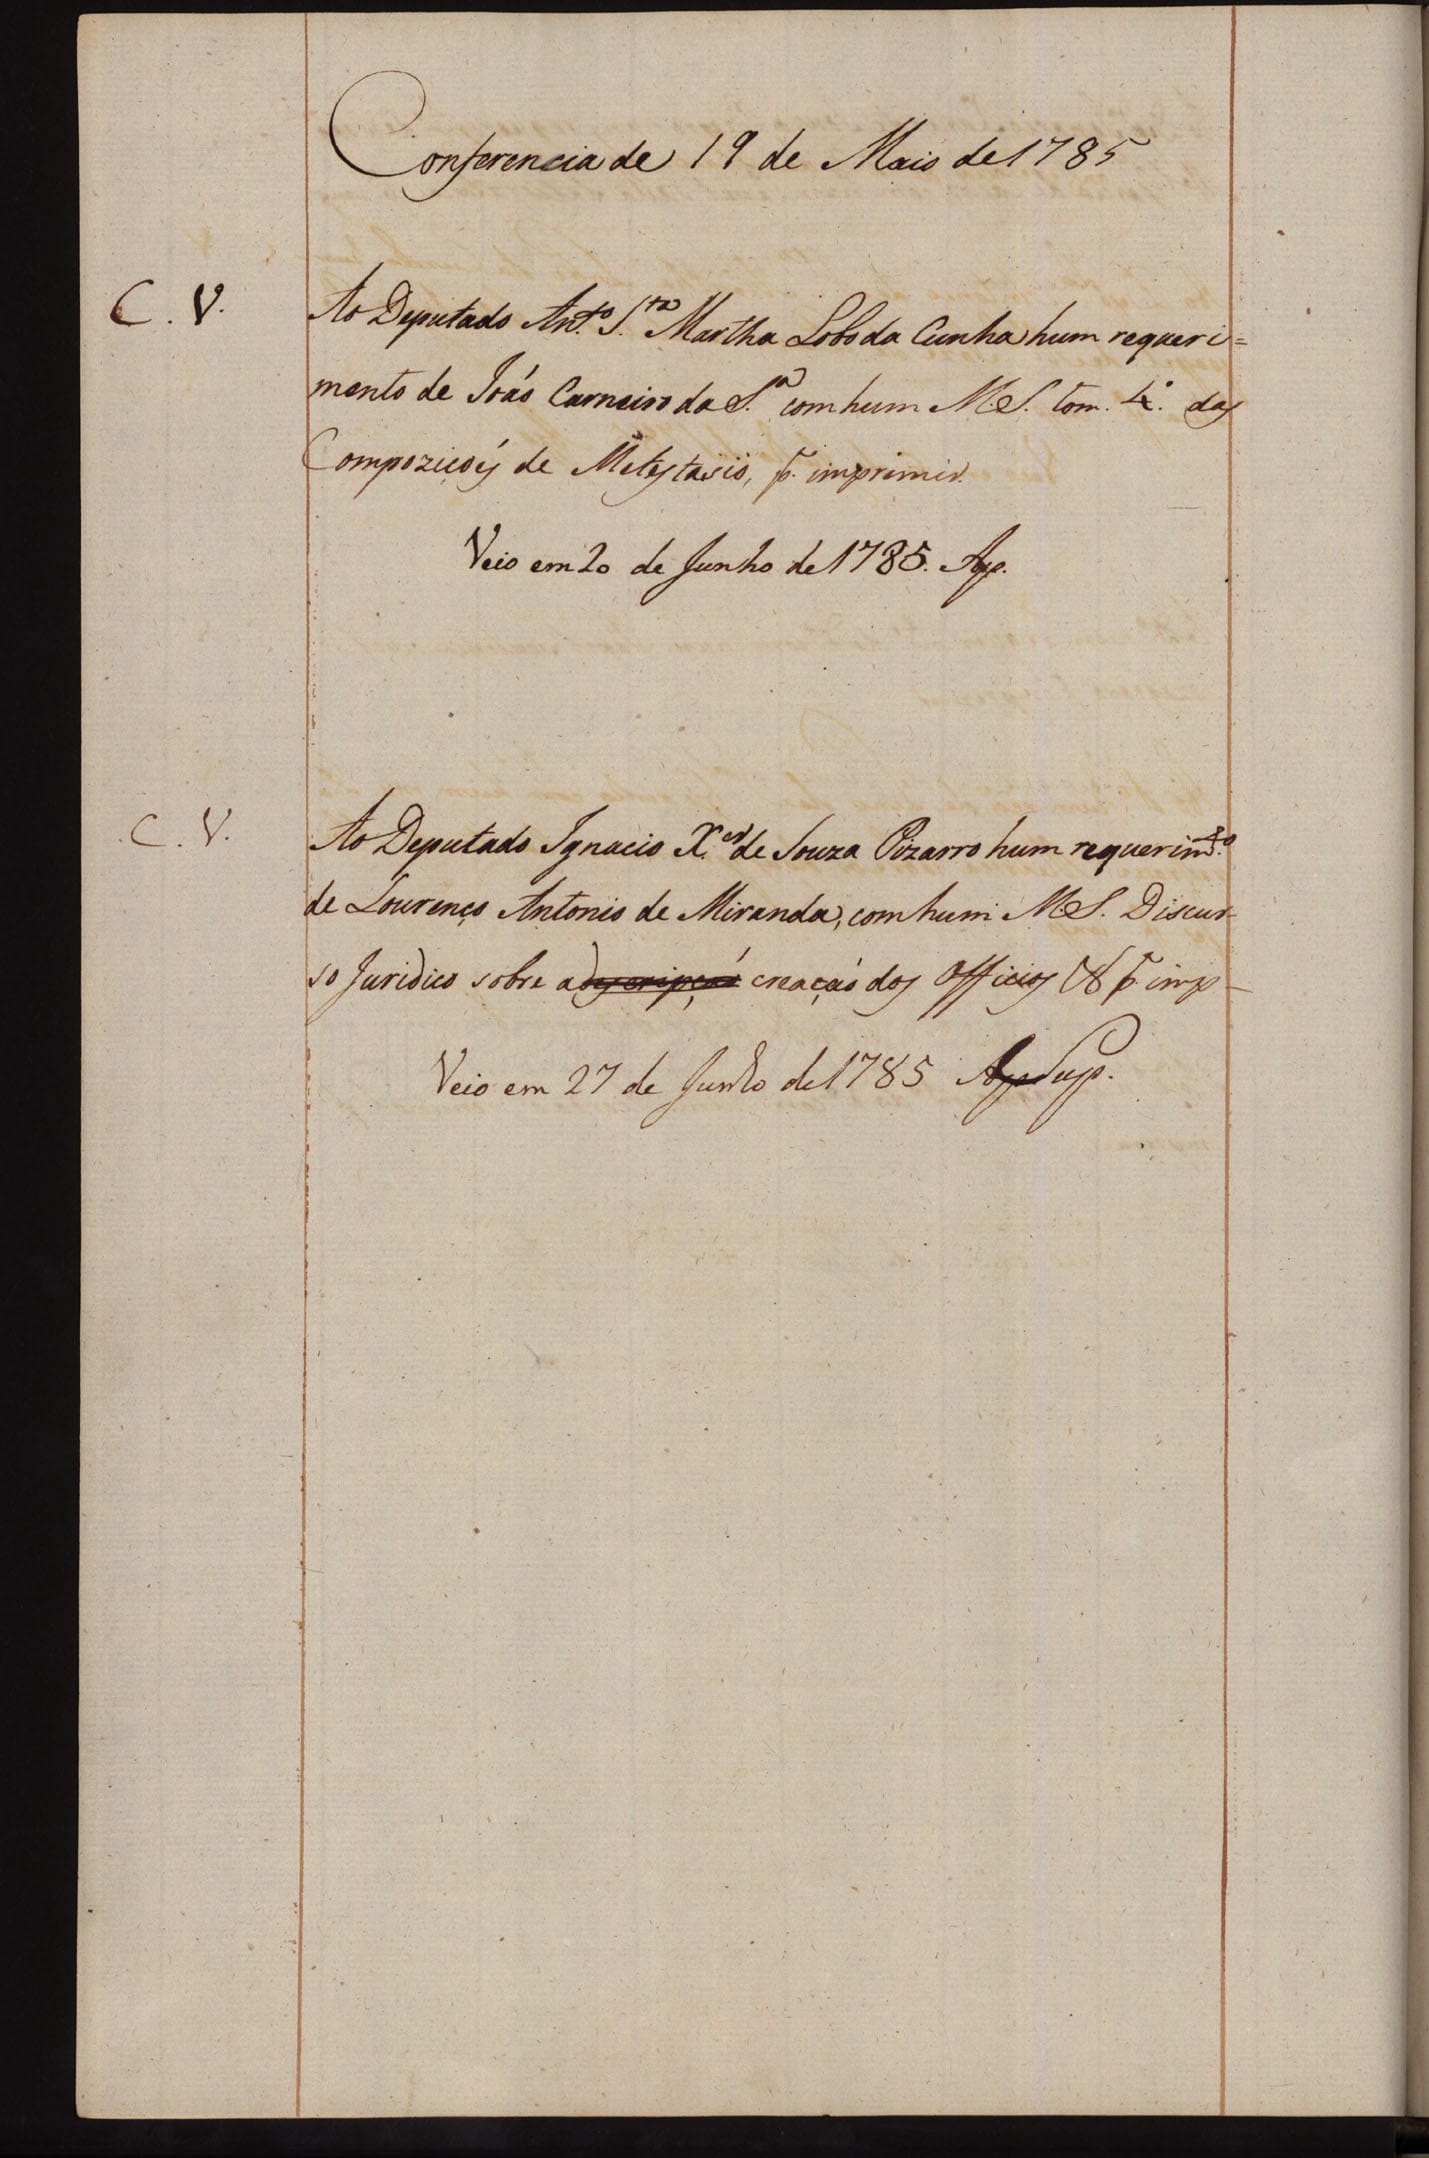 Conferencia de 19 de Maio de 1785
C. V.
Ao Deputado Ant.º S.ta Martha Lobo da Cunha hum requeri=
mento de Joáo Carneiro da S.ª com hum M.S. tom. 4.º das
Compoziçoẽs de Metestasio, p.ª imprimir.
Veio em 20 de Junho de 1785. Ap.
C. V.
Ao Deputado Ignacio X.er de Souza Pizarro hum requerim.to
de Lourenço Antonio de Miranda, com hum M.S. Discur-
so Juridico sobre a descripçaó creaçaó dos Officios &c p.ª imp-
Veio em 27 de Junho de 1785 Ap Sup.